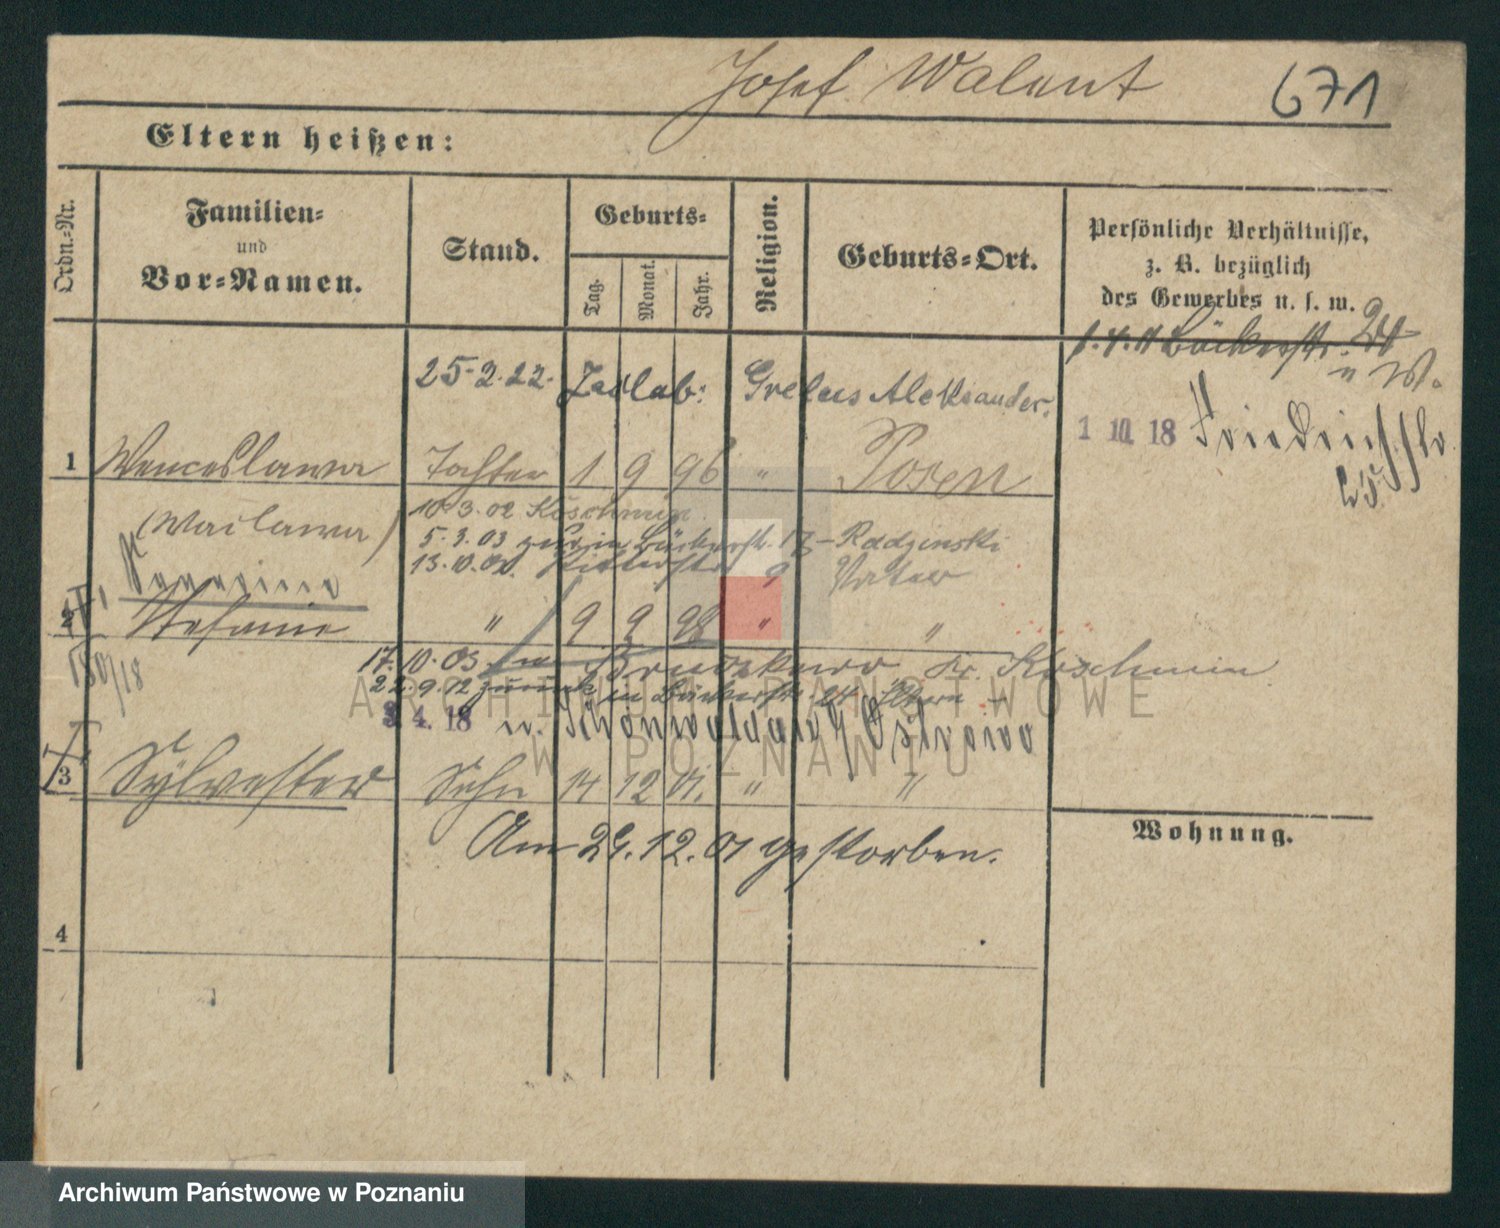 Josef Walent 671
Eltern heißen:
Ordn.-Nr.
Familien-
und
Vor-Namen.
Stand.
Geburts-
Tag.
Monat.
Jahr.
Religion.
Geburts-Ort.
Persönliche Verhältnisse,
z. B. bezüglich
des Gewerbes u. s. w.
1.4.11 Bäckerstr. 24
u W.
1 10 18 Friedrichstr
25
25-2-22- Zasl ab: Grelus Aleksander.
1 Wenceslawa Tochter 1 9 96 " Posen
(Waclawa) 10.3.02 Koschmin.
5.3.03 Bäckerstr. 17 - Radzinski
13.10.02. Ritterstr 9 Vater
2 Stefanie " 9 9 98 " "
180/18
17.10.03 in Kr. Koschmin
22.9.12 zurück in Bäckerstr. 24 Eltern -
3 4. 18 n.
3 Sylvester Sohn 14 12 01. " "
Am 29.12.01 gestorben.
Wohnung.
4
ARCHIWUM PAŃSTWOWE
W POZNANIU
Archiwum Państwowe w Poznaniu